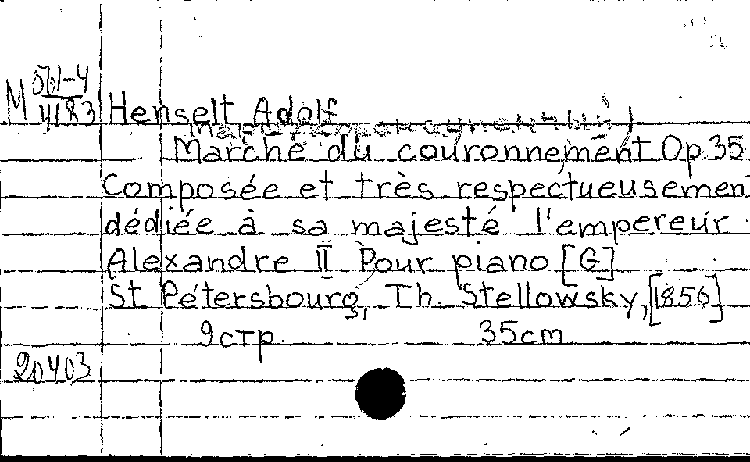 М 501-4
4183
Henselt Adolf
Marche du couronnement Op. 35
Composée et très respectueusement
dédiée à sa majesté l'empereur
Alexandre II Pour piano [G]
St. Pétersbourg, Th. Stellowsky, [1856]
9 стр. 35 cm
20403